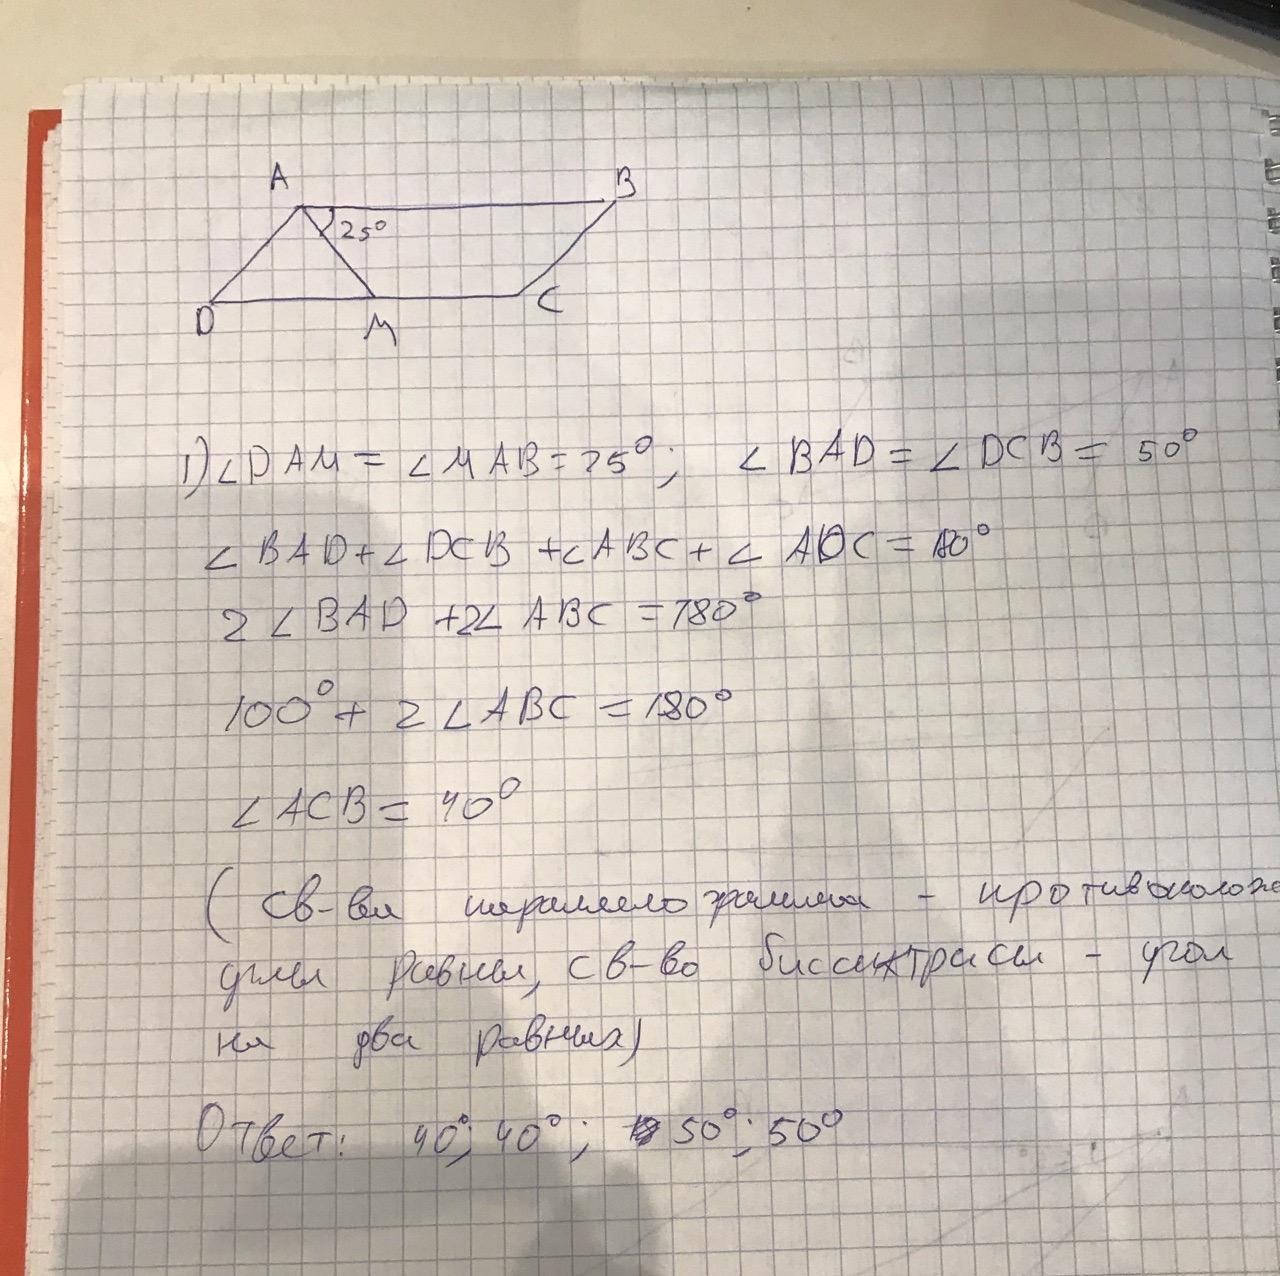 A
B
25°
D
M
C
1) ∠DAM = ∠MAB = 25°; ∠BAD = ∠DCB = 50°
∠BAD + ∠DCB + ∠ABC + ∠ADC = 180°
2∠BAD + 2∠ABC = 180°
100° + 2∠ABC = 180°
∠ACB = 40°
(св-ва параллелограмма - противополож
углы равны, св-во биссектрисы - угол
на два равных)
Ответ: 40°; 40°; 50°; 50°